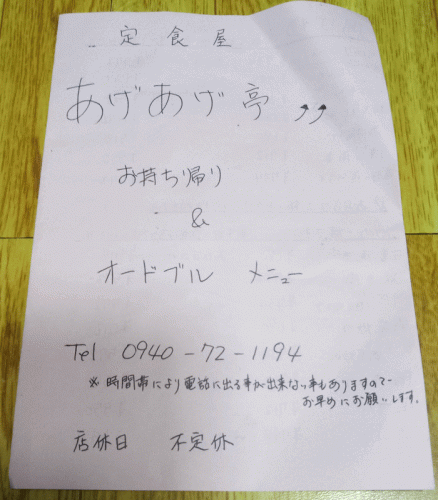 定食屋
あげあげ亭
お持ち帰り
&
オードブル メニュー
Tel 0940-72-1194
※時間帯により電話に出る事が出来ない事もありますので
お早めにお願いします。
店休日 不定休